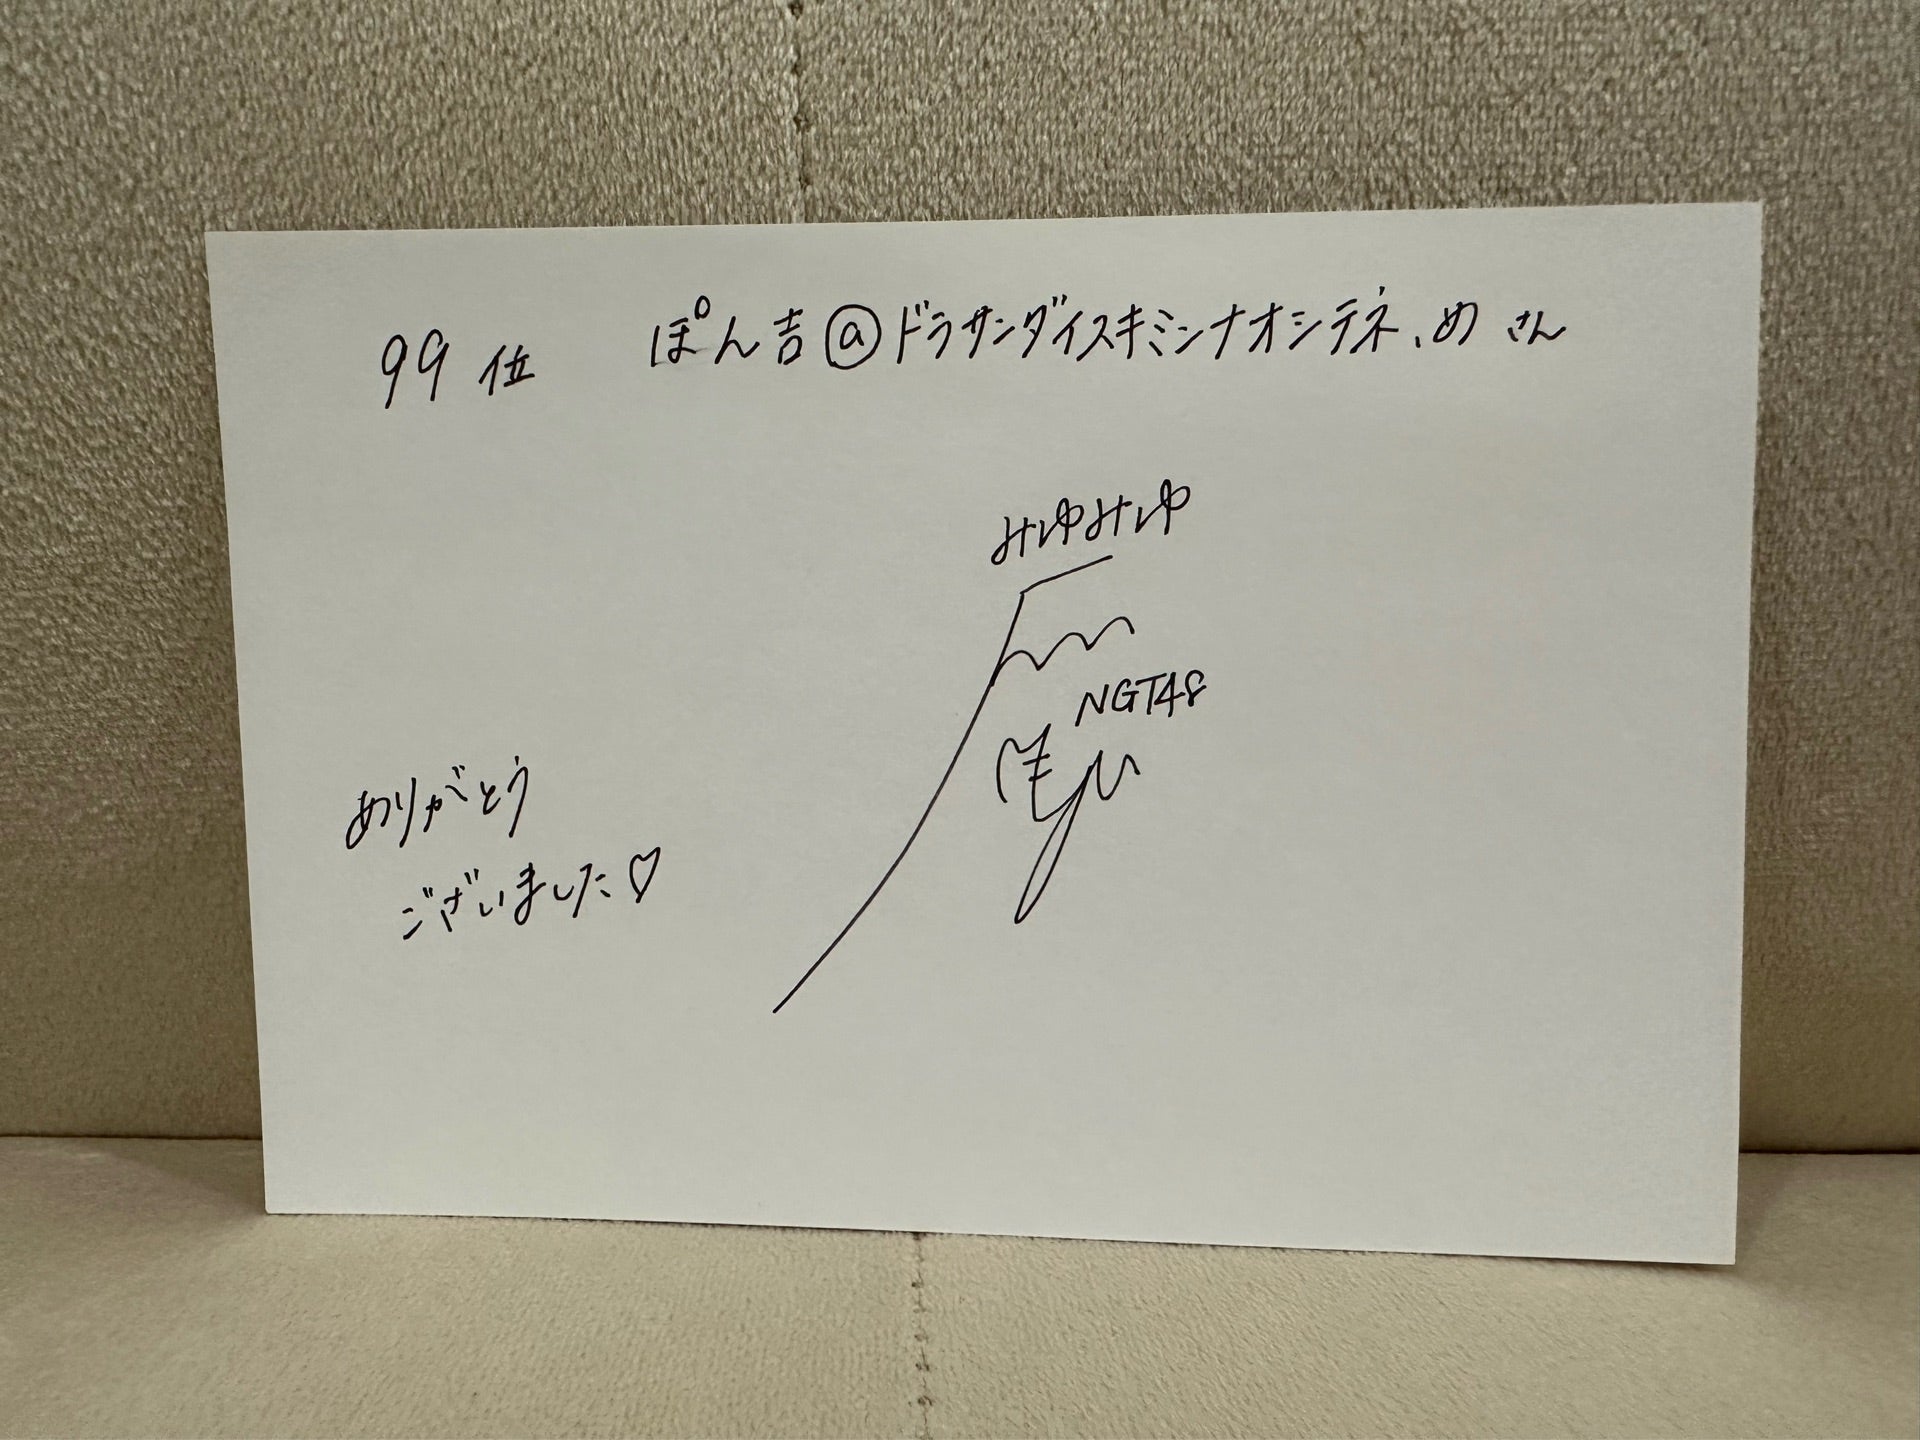 99位 ぽん吉@ドラサンダイスキミンナオシテネ、め さん
みゆみゆ
NGT48
ありがとう
ございました♡